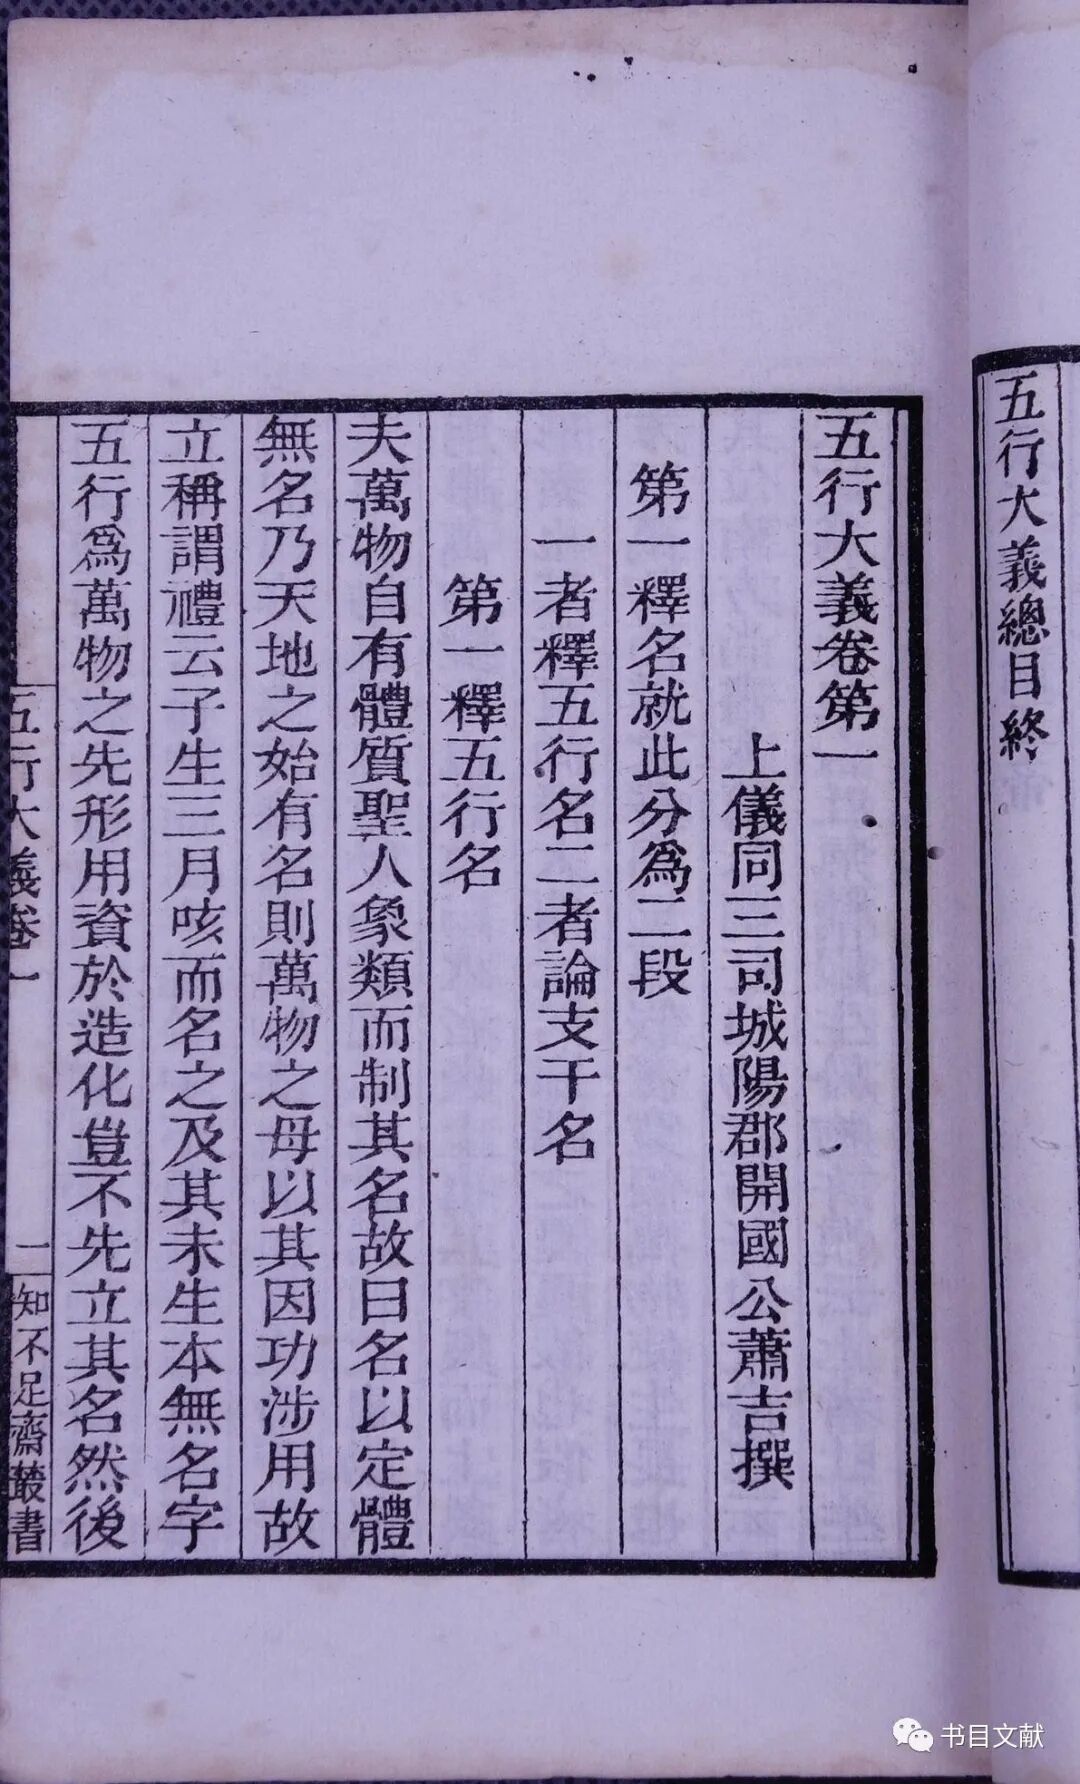 五行大義總目終
五行大義卷第一
上儀同三司城陽郡開國公蕭吉撰
第一釋名就此分爲二段
一者釋五行名二者論支干名
第一釋五行名
夫萬物自有體質聖人象類而制其名故曰名以定體
無名乃天地之始有名則萬物之母以其因功涉用故
立稱謂禮云子生三月咳而名之及其未生本無名字
五行爲萬物之先形用資於造化豈不先立其名然後
五行大義卷一
一
知不足齋叢書
书目文献